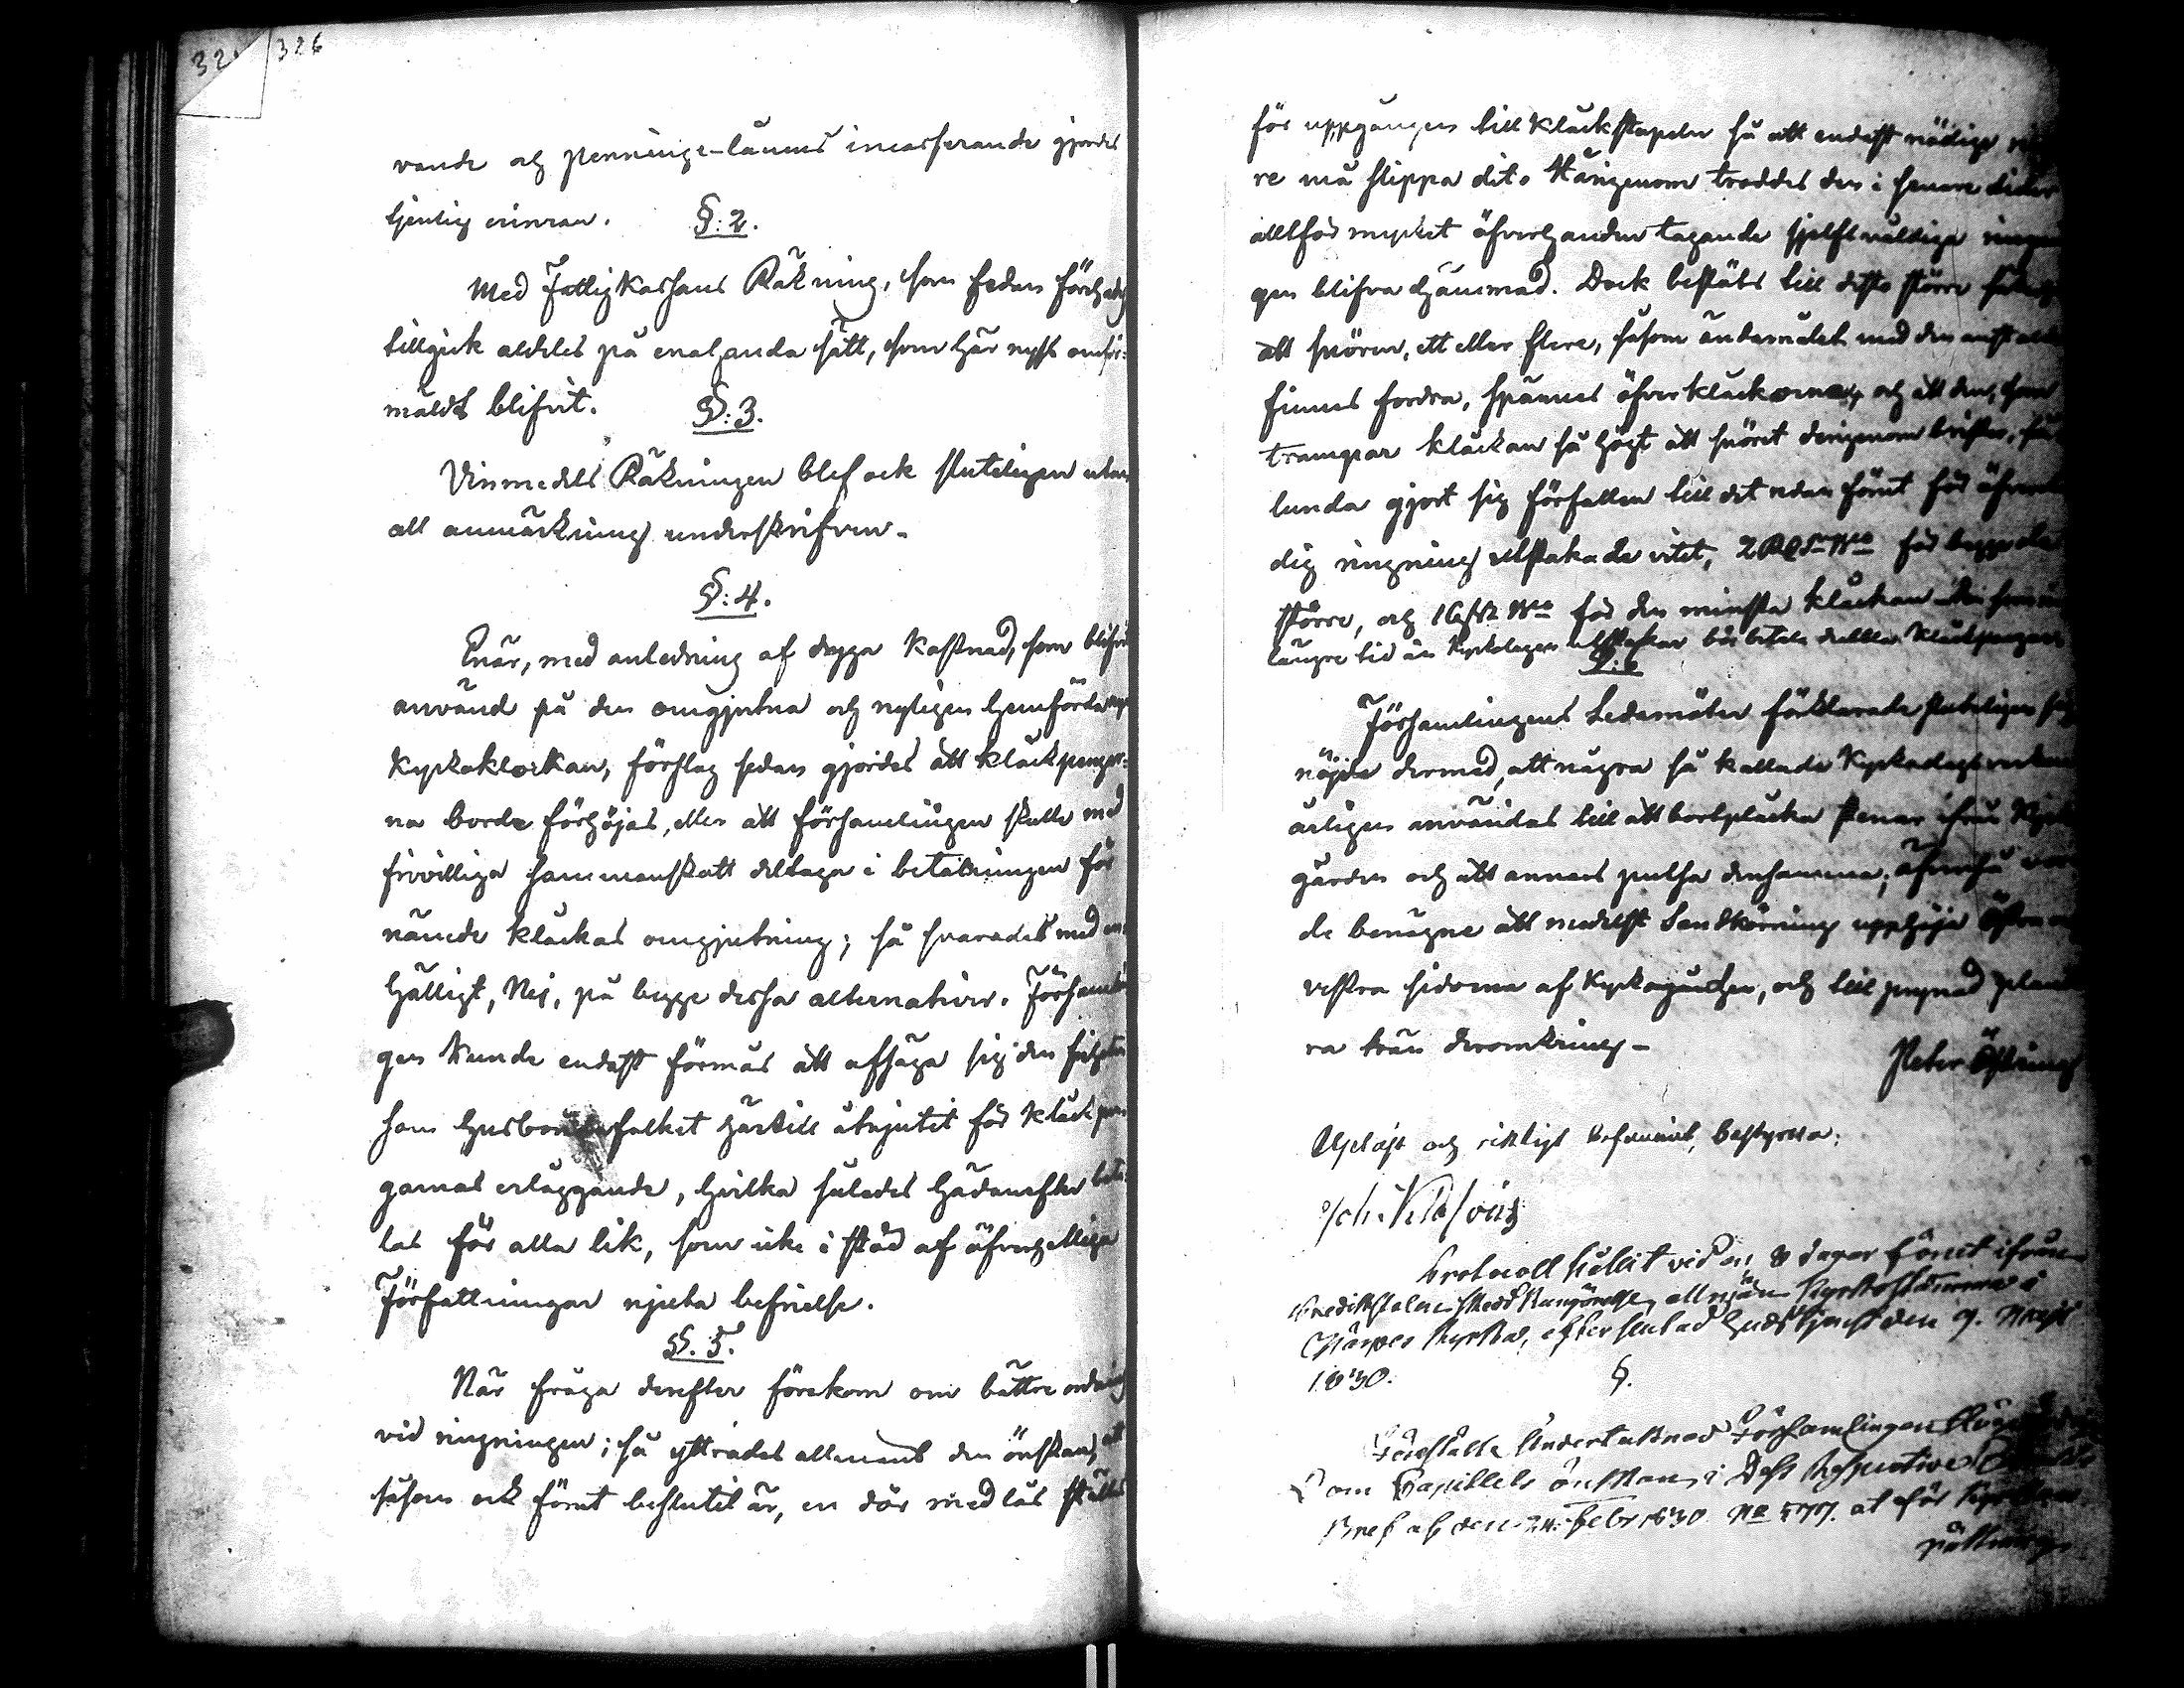 326
vande och Penninge-lånens incasserande gjordes
tjenlig erinran. §:2.
Med Fattigkassans Räkning, som sedan förehades
tillgick aldeles på enahanda sätt, som här nyss omför-
mäldt blifvit. §:3.
Vinmedels Räkningen blef ock sluteligen utan
all anmärkning underskrifven.
§:4.
Enär, med anledning af dryga Kostnad, som blifvit
använd på den omgjutna och nyligen hemförda
Kyrkoklockan, förslag sedan gjordes att kläckpengar-
na borde förhöjas, eller att församlingen skulle med
frivilliga sammanskott deltaga i betalningen för
nämde kläckas omgjutning; så svarades med en-
hälligt, Nej, på begge dessa alternativer. Församlin-
gen kunde endast förmås att afsäga sig den friheten
som husbondefolket härtill åtnjutit för kläckpen-
garnas erläggande, hvilka således hädanefter beta-
las för alla lik, som icke i stöd af öfverhetliga
Författningar njuta befrielse.
§. 5.
När fråga derefter förekom om bättre ordning
vid ringningen; så yttrades allmänt den önskan, att
såsom ock förut beslutit är, en dör med lås ställes
för uppgången till kläckstapeln så att endast nödige
re må slippa dit. Härigenom troddes den i senare tider
alltför mycket öfverhanden tagande sjelfsvåldiga ringnin
gen blifva hämmad. Dock bestäts till dess större
att snören, ett eller flere, såsom ändamålet med den anstalten
finnes fordra, spännes öfver kläckorna, och att den, som
trampar kläckan så högt att snöret derigenom brister, så-
lunda gjort sig förfallen till det redan förut för
dig ringning utstakade vitet, 2 för begge de
större, och 16 för den minsta kläckan
längre tid än Kyrkolagen utstakar bör betala dubbla Kläckpengar
§:6
Församlingens Ledamöter förklarade sluteligen sig
nöjde dermed, att några så kallade Kyrkodagsverken
årligen användas till att bortplåcka stenar ifrån Kyrko-
gården och att annars putsa densamma; äfvenså voro
de benägne att medelst Sandkörning upphöja Östra och
vestra sidorna af Kyrkogården, och till prynad plante-
ra trän deromkring—
Peter
Upläst och riktigt befunnit, bestyrka:
Protocoll hållit vid en, 8 dagar förut ifrån
Predikstolen skedd Kungörelse, allmän Kyrkostämma i
Kyrka, efter slutad Gudstjenst den 9. Maji
1830. §.
Föreställte Undertecknad Församlingen
om Capitlets önskan, i Dess Respective
Bref af den 24. Febr 1830 No 577. at för Kyrkans